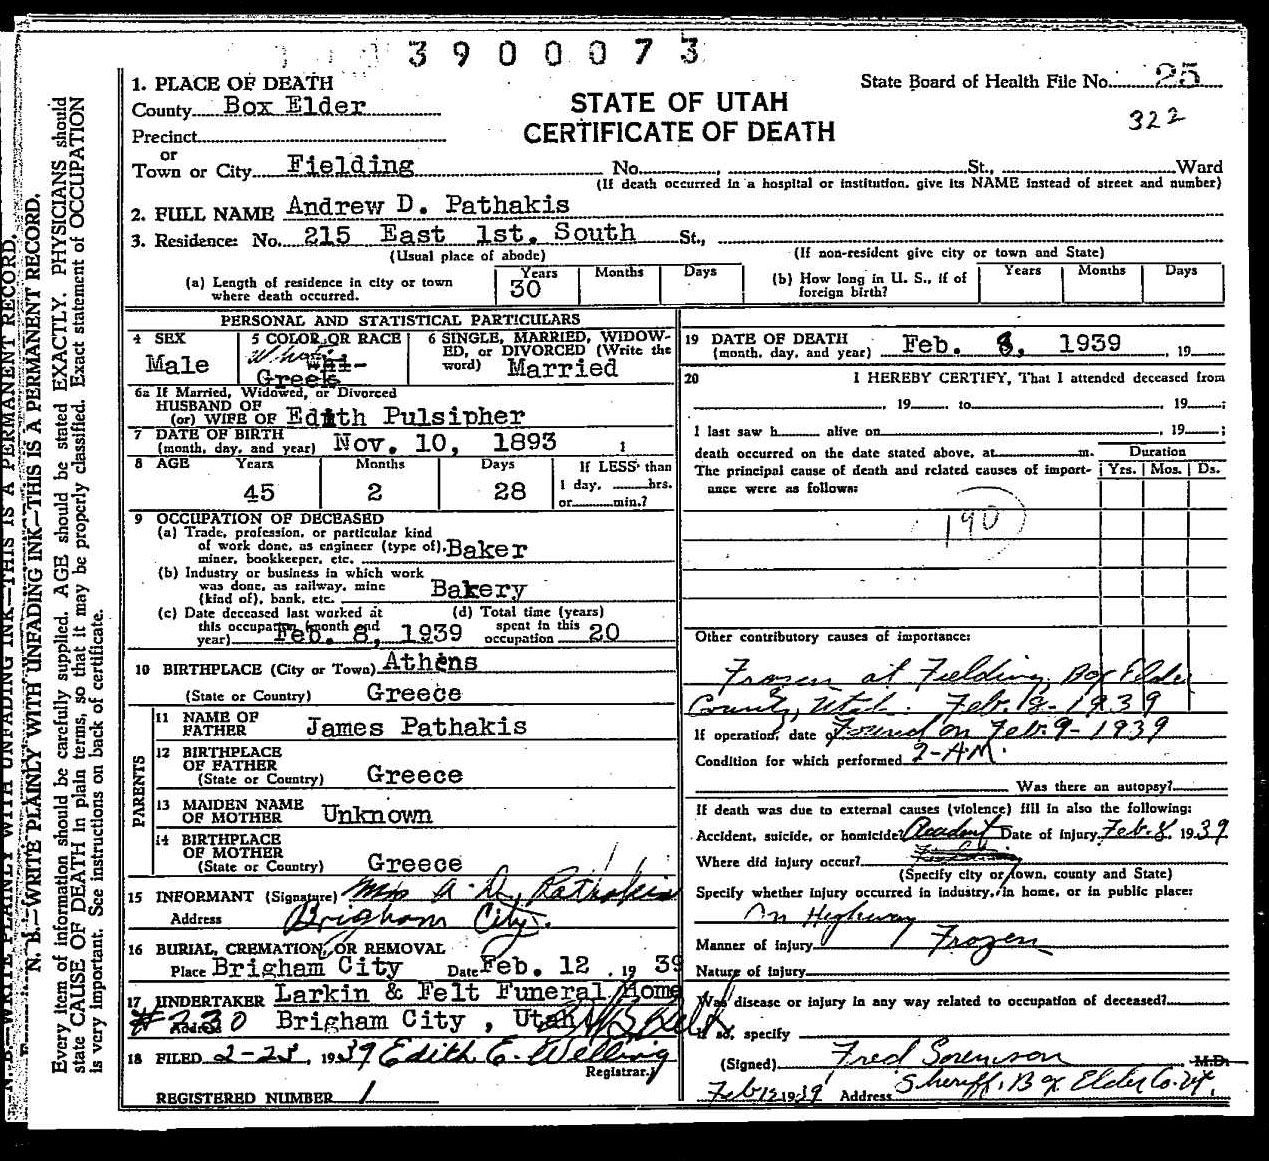 3900073
State Board of Health File No. 25
322
STATE OF UTAH
CERTIFICATE OF DEATH
1. PLACE OF DEATH
County Box Elder
Precinct
or
Town or City Fielding No. , St., Ward
(If death occurred in a hospital or institution, give its NAME instead of street and number)
2. FULL NAME Andrew D. Pathakis
3. Residence: No. 215 East 1st. South St.,
(Usual place of abode) (If non-resident give city or town and State)
(a) Length of residence in city or town where death occurred. Years 30 Months Days
(b) How long in U. S., if of foreign birth? Years Months Days
PERSONAL AND STATISTICAL PARTICULARS
4 SEX Male
5 COLOR OR RACE White Greek
6 SINGLE, MARRIED, WIDOWED, or DIVORCED (Write the word) Married
6a If Married, Widowed, or Divorced
HUSBAND OF
(or) WIFE OF Edith Pulsipher
7 DATE OF BIRTH
(month, day, and year) Nov. 10, 1893
8 AGE Years 45 Months 2 Days 28
If LESS than
1 day, hrs.
or min.?
9 OCCUPATION OF DECEASED
(a) Trade, profession, or particular kind
of work done, as engineer (type of),
miner, bookkeeper, etc. Baker
(b) Industry or business in which work
was done, as railway, mine
(kind of), bank, etc. Bakery
(c) Date deceased last worked at
this occupation (month and
year) Feb. 8, 1939
(d) Total time (years)
spent in this
occupation 20
10 BIRTHPLACE (City or Town) Athens
(State or Country) Greece
PARENTS
11 NAME OF
FATHER James Pathakis
12 BIRTHPLACE
OF FATHER
(State or Country) Greece
13 MAIDEN NAME
OF MOTHER Unknown
14 BIRTHPLACE
OF MOTHER
(State or Country) Greece
15 INFORMANT (Signature) Mrs A. D. Pathakis
Address Brigham City.
16 BURIAL, CREMATION, OR REMOVAL
Place Brigham City Date Feb. 12, 1939
17 UNDERTAKER Larkin & Felt Funeral Home
#230 Address Brigham City, Utah
18 FILED 2-23, 1939 Edith E. Welling
Registrar.
REGISTERED NUMBER 1
19 DATE OF DEATH
(month, day, and year) Feb. 8, 1939, 19
20 I HEREBY CERTIFY, That I attended deceased from
, 19 to , 19 ;
I last saw h alive on , 19 ;
death occurred on the date stated above, at m.
The principal cause of death and related causes of importance were as follows:
Duration
Yrs. Mos. Ds.
190
Other contributory causes of importance:
Frozen at Fielding, Box Elder
County, Utah. Feb. 8-1939
If operation, date of Found on Feb. 9-1939
Condition for which performed 2-A.M.
Was there an autopsy?
If death was due to external causes (violence) fill in also the following:
Accident, suicide, or homicide? Accident Date of injury Feb. 8, 1939
Where did injury occur? Fielding
(Specify city or town, county and State)
Specify whether injury occurred in industry, in home, or in public place:
On Highway
Manner of injury Frozen
Nature of injury
Was disease or injury in any way related to occupation of deceased?
If so, specify
(Signed) Fred Sorenson M.D.
Feb 12 1939 Address Sheriff, Box Elder Co. Ut.
N. B.—WRITE PLAINLY WITH UNFADING INK—THIS IS A PERMANENT RECORD.
N. B.—WRITE PLAINLY WITH UNFADING INK—THIS IS A PERMANENT RECORD.
Every item of information should be carefully supplied. AGE should be stated EXACTLY. PHYSICIANS should
state CAUSE OF DEATH in plain terms, so that it may be properly classified. Exact statement of OCCUPATION
is very important. See instructions on back of certificate.